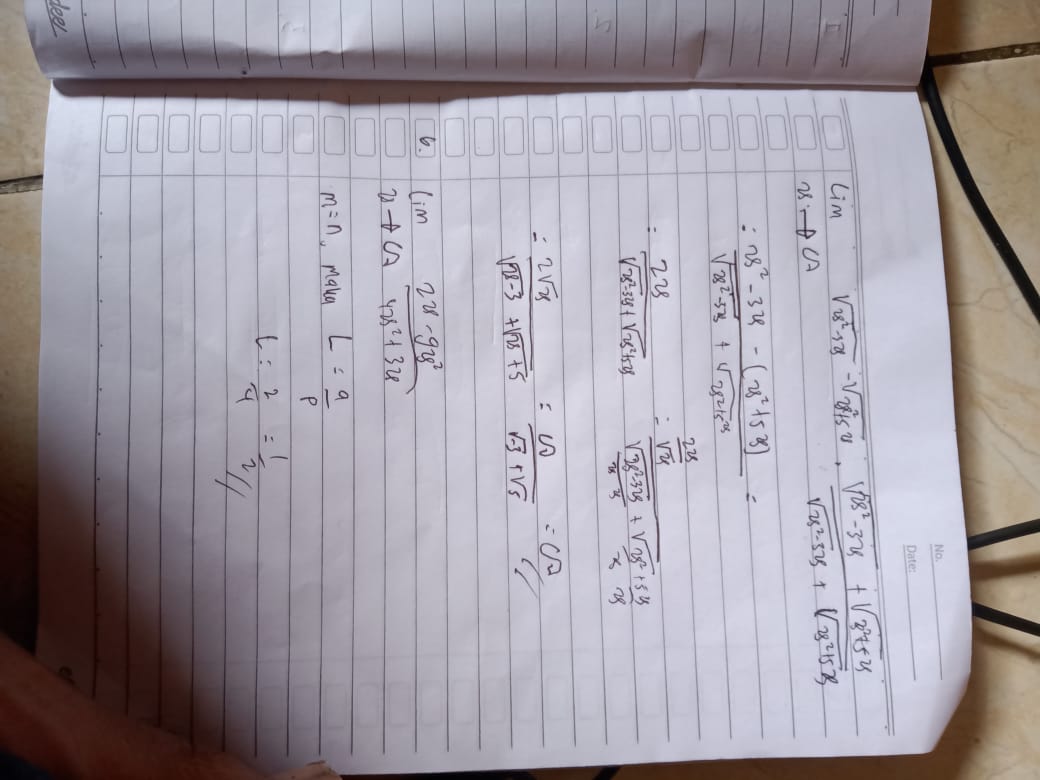 No.
Date:
Lim √x²-3x - √x²+5x . √x²-3x + √x²+5x
x → ∞ √x²-3x + √x²+5x
= x² - 3x - (x²+5x) =
√x²-3x + √x²+5x
= 2x
√x²-3x + √x²+5x
= 2x
√x
√x²-3x + √x²+5x
x x x x
= 2√x = ∞ = ∞ //
√x-3 + √x+5 √-3 + √5
6. Lim 2x - 9x²
x → ∞ 4x² + 3x
m = n, maka L = a
p
L = 2 = 1 //
4 2